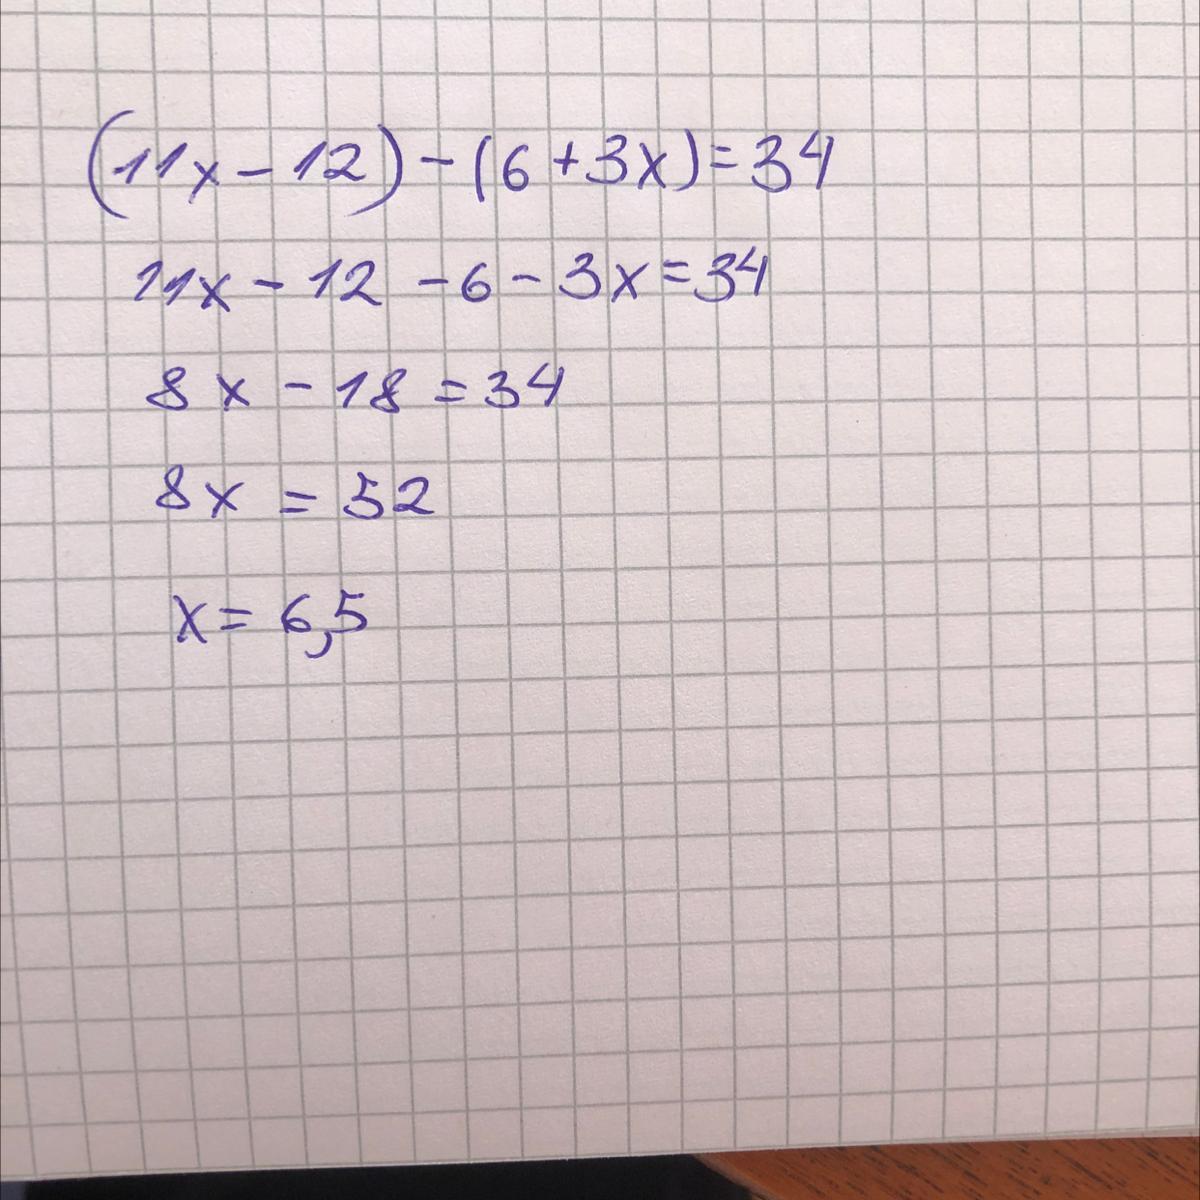 (11x - 12) - (6 + 3x) = 34
11x - 12 - 6 - 3x = 34
8x - 18 = 34
8x = 52
x = 6,5